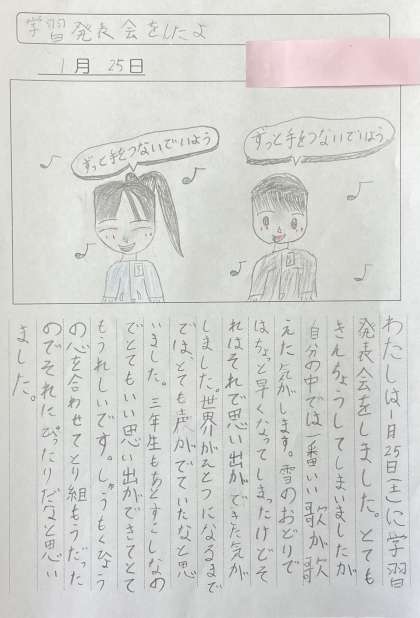 学習発表会をしたよ
1月25日
ずっと手をつないでいよう
ずっと手をつないでいよう
わたしは1月25日(土)に学習
発表会をしました。とても
きんちょうしてしまいましたが
自分の中では一番いい歌が歌
えた気がします。雪のおどりで
はちょっと早くなってしまったけどそ
れはそれで思い出ができた気が
しました。世界がひとつになるまで
では、とても声がでていたなと思
いました。三年生もあとすこしなの
でとてもいい思い出ができてとて
もうれしいです。しゅうもくひょう
の心を合わせてとり組もうだった
のでそれにぴったりだなと思い
ました。